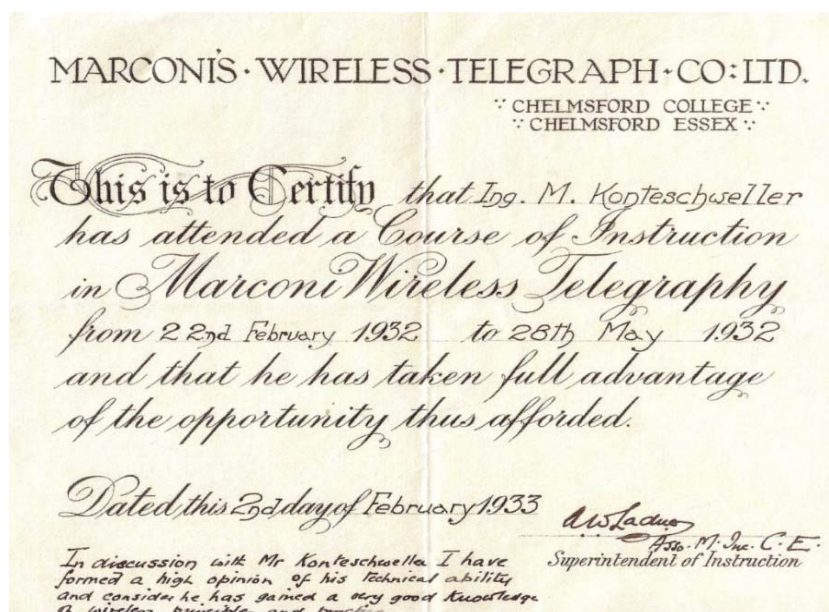 MARCONI'S · WIRELESS · TELEGRAPH · CO: LTD.
CHELMSFORD COLLEGE
CHELMSFORD ESSEX
This is to Certify that Ing. M. Konteschweller
has attended a Course of Instruction
in Marconi Wireless Telegraphy
from 22nd February 1932 to 28th May 1932
and that he has taken full advantage
of the opportunity thus afforded.
Dated this 2nd day of February 1933
Asso. M. Inc. C. E.
Superintendent of Instruction
In discussion with Mr Konteschweller I have
formed a high opinion of his technical ability
and consider he has gained a very good knowledge
of wireless principle and practice